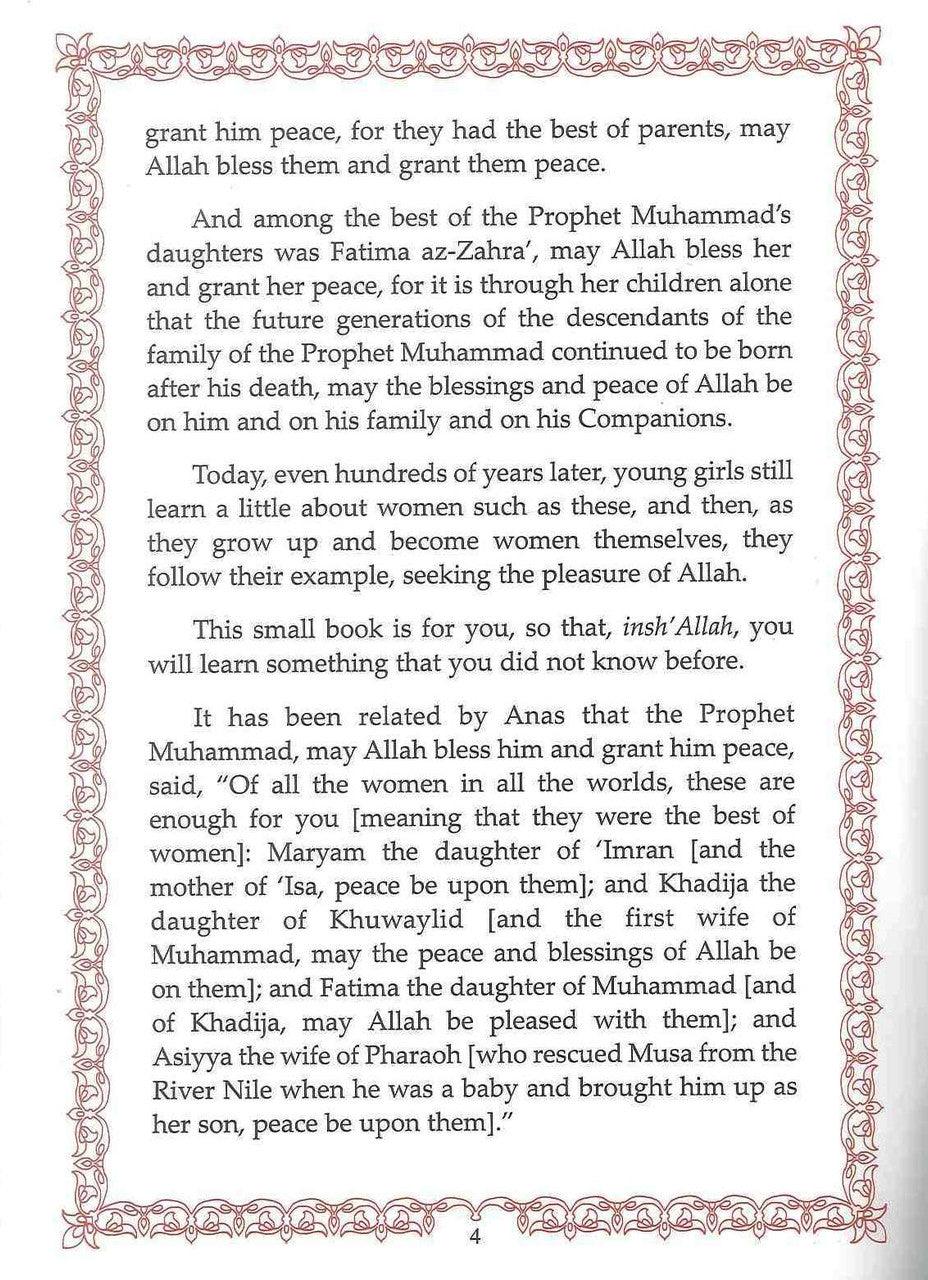 grant him peace, for they had the best of parents, may
Allah bless them and grant them peace.
And among the best of the Prophet Muhammad's
daughters was Fatima az-Zahra', may Allah bless her
and grant her peace, for it is through her children alone
that the future generations of the descendants of the
family of the Prophet Muhammad continued to be born
after his death, may the blessings and peace of Allah be
on him and on his family and on his Companions.
Today, even hundreds of years later, young girls still
learn a little about women such as these, and then, as
they grow up and become women themselves, they
follow their example, seeking the pleasure of Allah.
This small book is for you, so that, insh'Allah, you
will learn something that you did not know before.
It has been related by Anas that the Prophet
Muhammad, may Allah bless him and grant him peace,
said, "Of all the women in all the worlds, these are
enough for you [meaning that they were the best of
women]: Maryam the daughter of 'Imran [and the
mother of 'Isa, peace be upon them]; and Khadija the
daughter of Khuwaylid [and the first wife of
Muhammad, may the peace and blessings of Allah be
on them]; and Fatima the daughter of Muhammad [and
of Khadija, may Allah be pleased with them]; and
Asiyya the wife of Pharaoh [who rescued Musa from the
River Nile when he was a baby and brought him up as
her son, peace be upon them]."
4